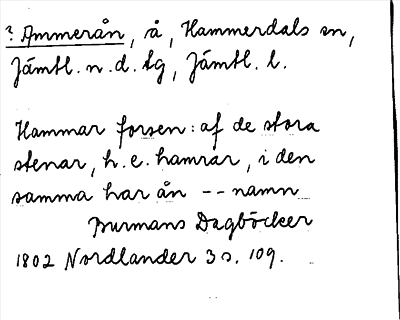 ? Ammerån, å, Hammerdals sn,
Jämtl. n. d. tg, Jämtl. l.
Hammar forsen: af de stora
stenar, h. e. hamrar, i den
samma har ån -- namn
Burmans Dagböcker
1802 Nordlander 3 s. 109.